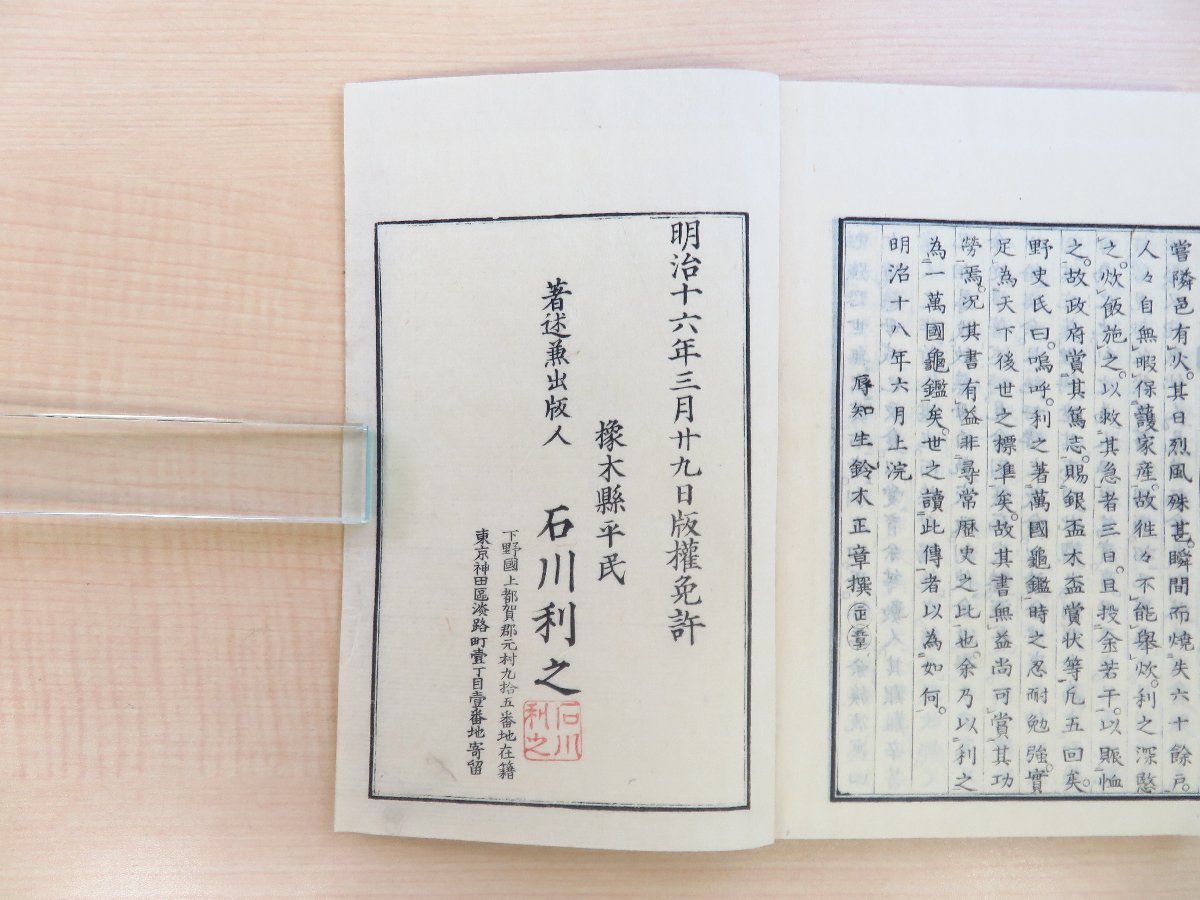 嘗隣邑有火。其日烈風殊甚。瞬間而燒失六十餘戸。
人々自無暇保護家産。故徃々不能擧炊。利之深愍
之。炊飯施之。以救其急者三日。且投金若干。以賑恤
之。故政府賞其篤志。賜銀盃木盃賞状等凡五回矣。
野史氏曰。嗚呼。利之著萬國龜鑑。時之忍耐勉強。實
足為天下後世之標準矣。故其書無益尚可賞其功
勞焉。况其書有益非尋常歴史之比也。余乃以利之
為一萬國龜鑑矣。世之讀此傳者以為如何。
明治十八年六月上浣
辱知生鈴木正章撰
正章
明治十六年三月廿九日版權免許
橡木縣平民
著述兼出版人 石川利之
石川利之
下野國上都賀郡元村九拾五番地在籍
東京神田區淡路町壹丁目壹番地寄留